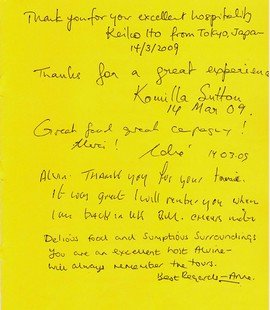 Thank you for your excellent hospitality
Keiko Ito from Tokyo, Japan
14/3/2009
Thanks for a great experience
Komilla Sutton
14 Mar 09.
Great food great company!
14 03.09
Alwin - THANK you for your
It was great I will you when
I am back in UK
Delicious food and Sumptious Surroundings
You are an excellent host Alwine-
will always remember the tours.
Best Regards - Anne.